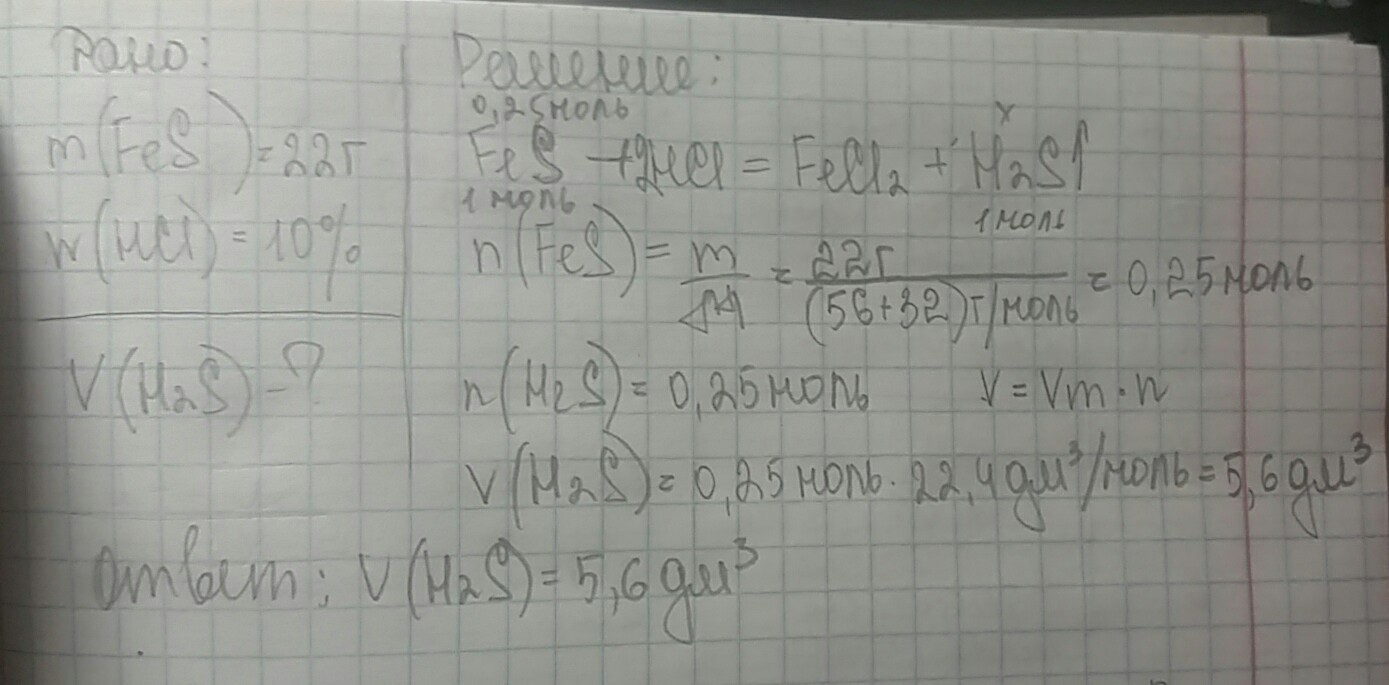 Дано:
m(FeS)=22г
w(HCl)=10%
V(H2S)-?
Решение:
0,25моль x
FeS+2HCl=FeCl2+H2S↑
1моль 1моль
n(FeS)=m/M=22г/(56+32)г/моль=0,25моль
n(H2S)=0,25моль V=Vm·n
V(H2S)=0,25моль·22,4дм³/моль=5,6дм³
Ответ: V(H2S)=5,6дм³